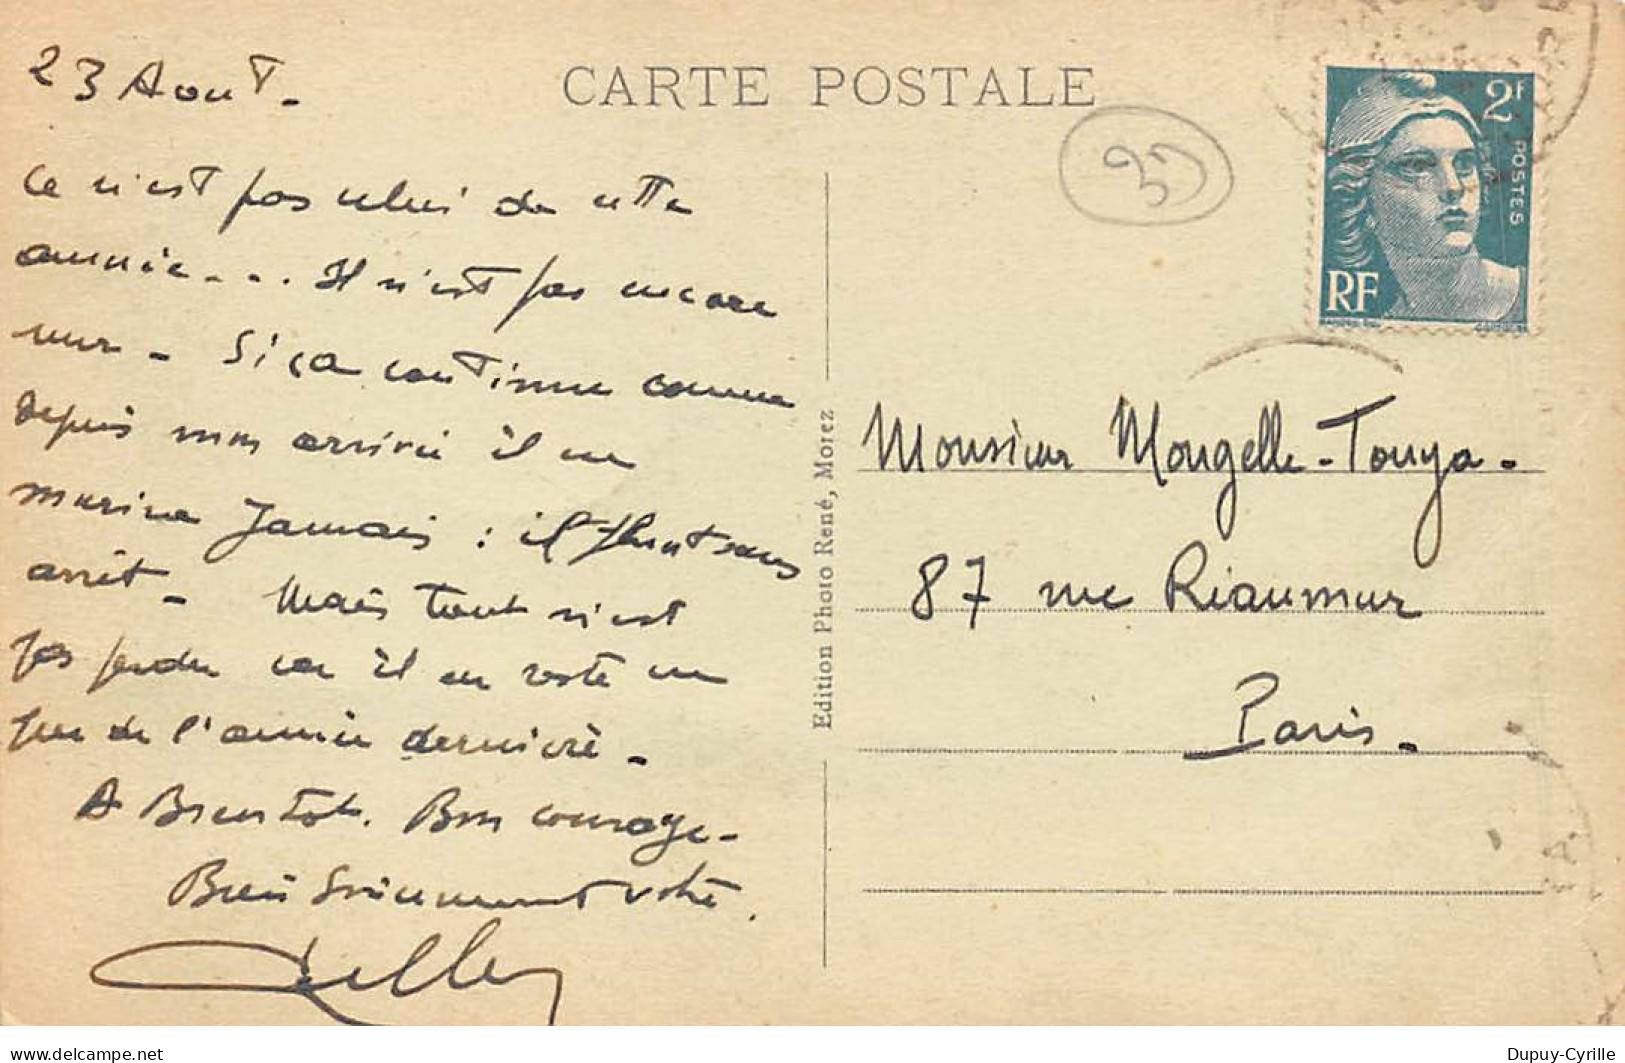 CARTE POSTALE
23 Aout.
Ce n'est pas celui de cette
année... Il n'est pas encore
mur. Si ça continue comme
depuis mon arrivée il ne
murira Jamais : il pleut sans
arrêt. Mais tout n'est
pas perdu car il en reste un
peu de l'année dernière.
A Bientôt. Bon courage.
Bien Sincèrement votre.
Edition Photo René, Morez
39
2F
POSTES
RF
Monsieur Mougelle-Touya.
87 rue Réaumur
Paris.
delcampe.net
Dupuy-Cyrille